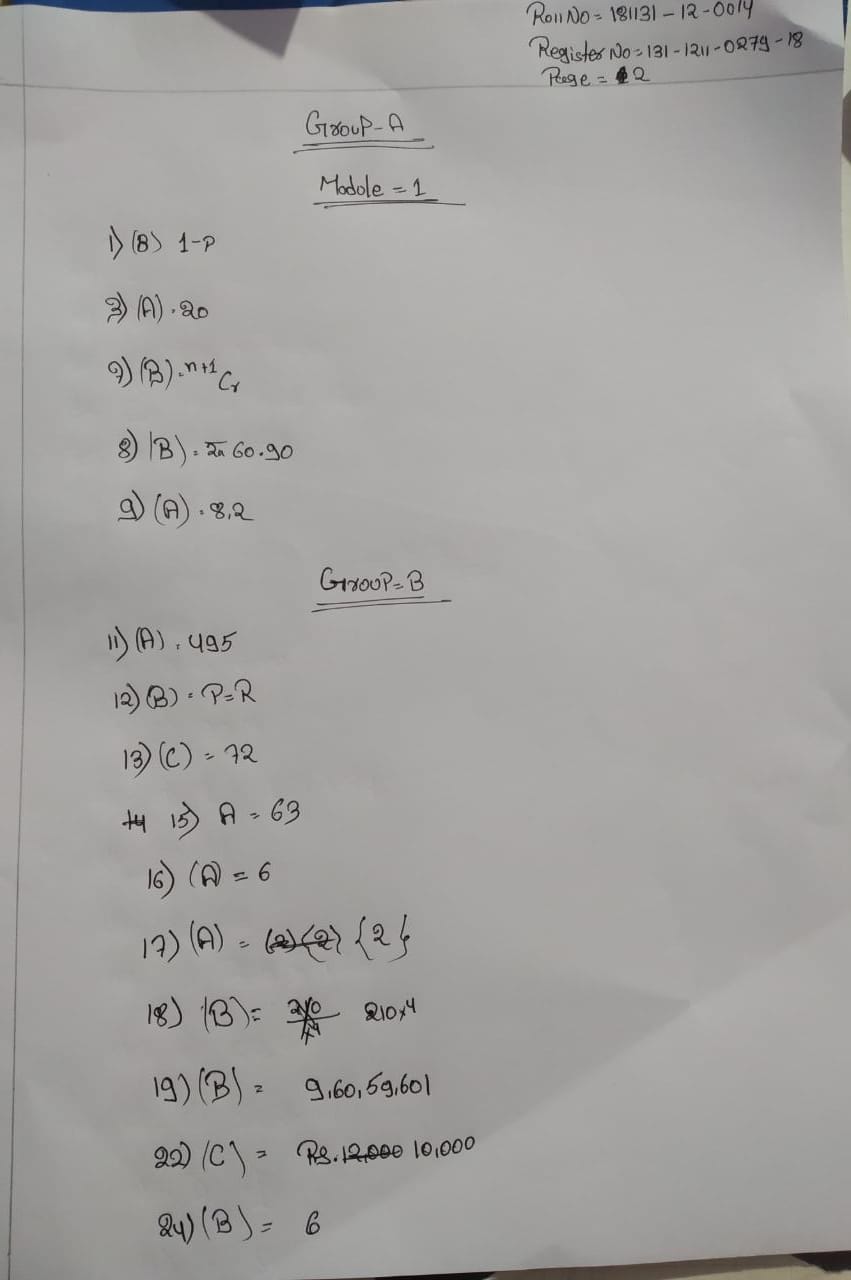 Roll No = 181131-12-0014
Register No = 131-1211-0279-18
Page = 2
Group-A
Modole = 1
1) (B) 1-P
3) (A) . 20
7) (B) . n+1Cr
8) (B) = 60.90
9) (A) . 8,2
Group=B
11) (A) . 495
12) (B) = P=R
13) (C) = 72
14 15) A = 63
16) (A) = 6
17) (A) = (2) {2} {2}
18) (B) = 210x4
19) (B) = 9,60,59,601
22) (C) = Rs. 12,000 10,000
24) (B) = 6